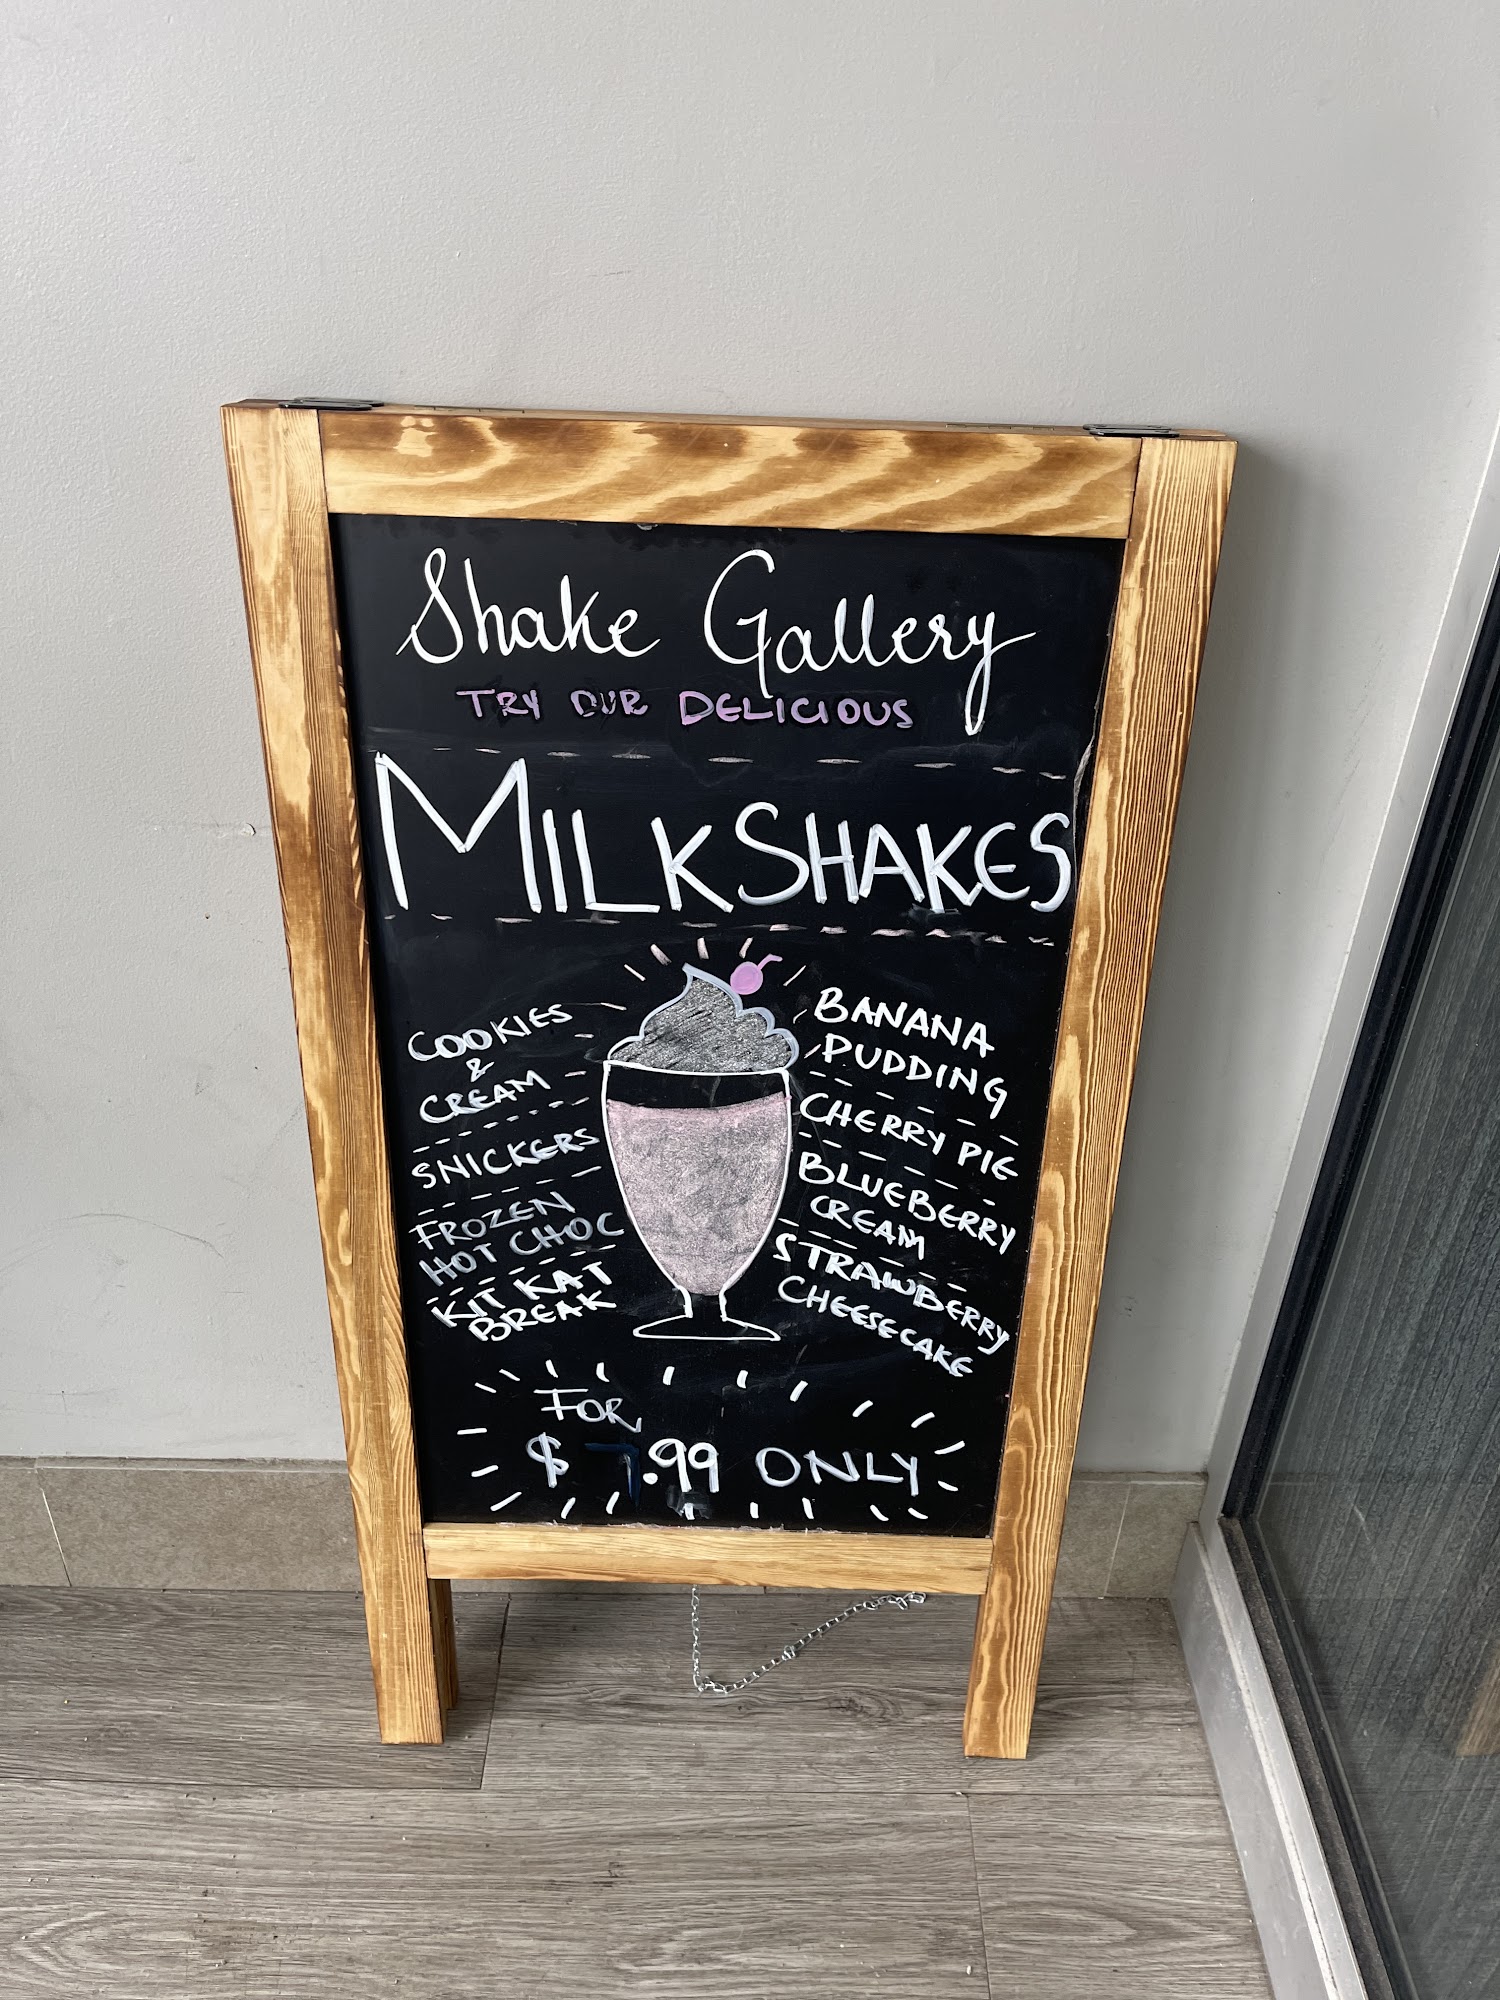 Shake Gallery
TRY OUR DELICIOUS
MILKSHAKES
COOKIES
&
CREAM
SNICKERS
FROZEN
HOT CHOC
KIT KAT
BREAK
BANANA
PUDDING
CHERRY PIE
BLUEBERRY
CREAM
STRAWBERRY
CHEESECAKE
FOR
$ 7.99 ONLY